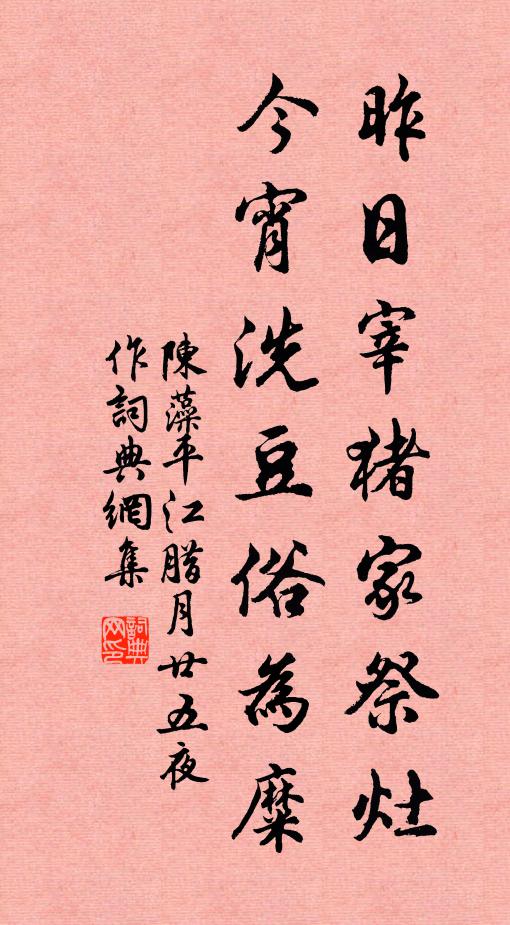 昨日宰猪家祭灶
今宵洗豆俗為糜
陳藻平江腊月廿五夜
作詞典網集
詞典
网印